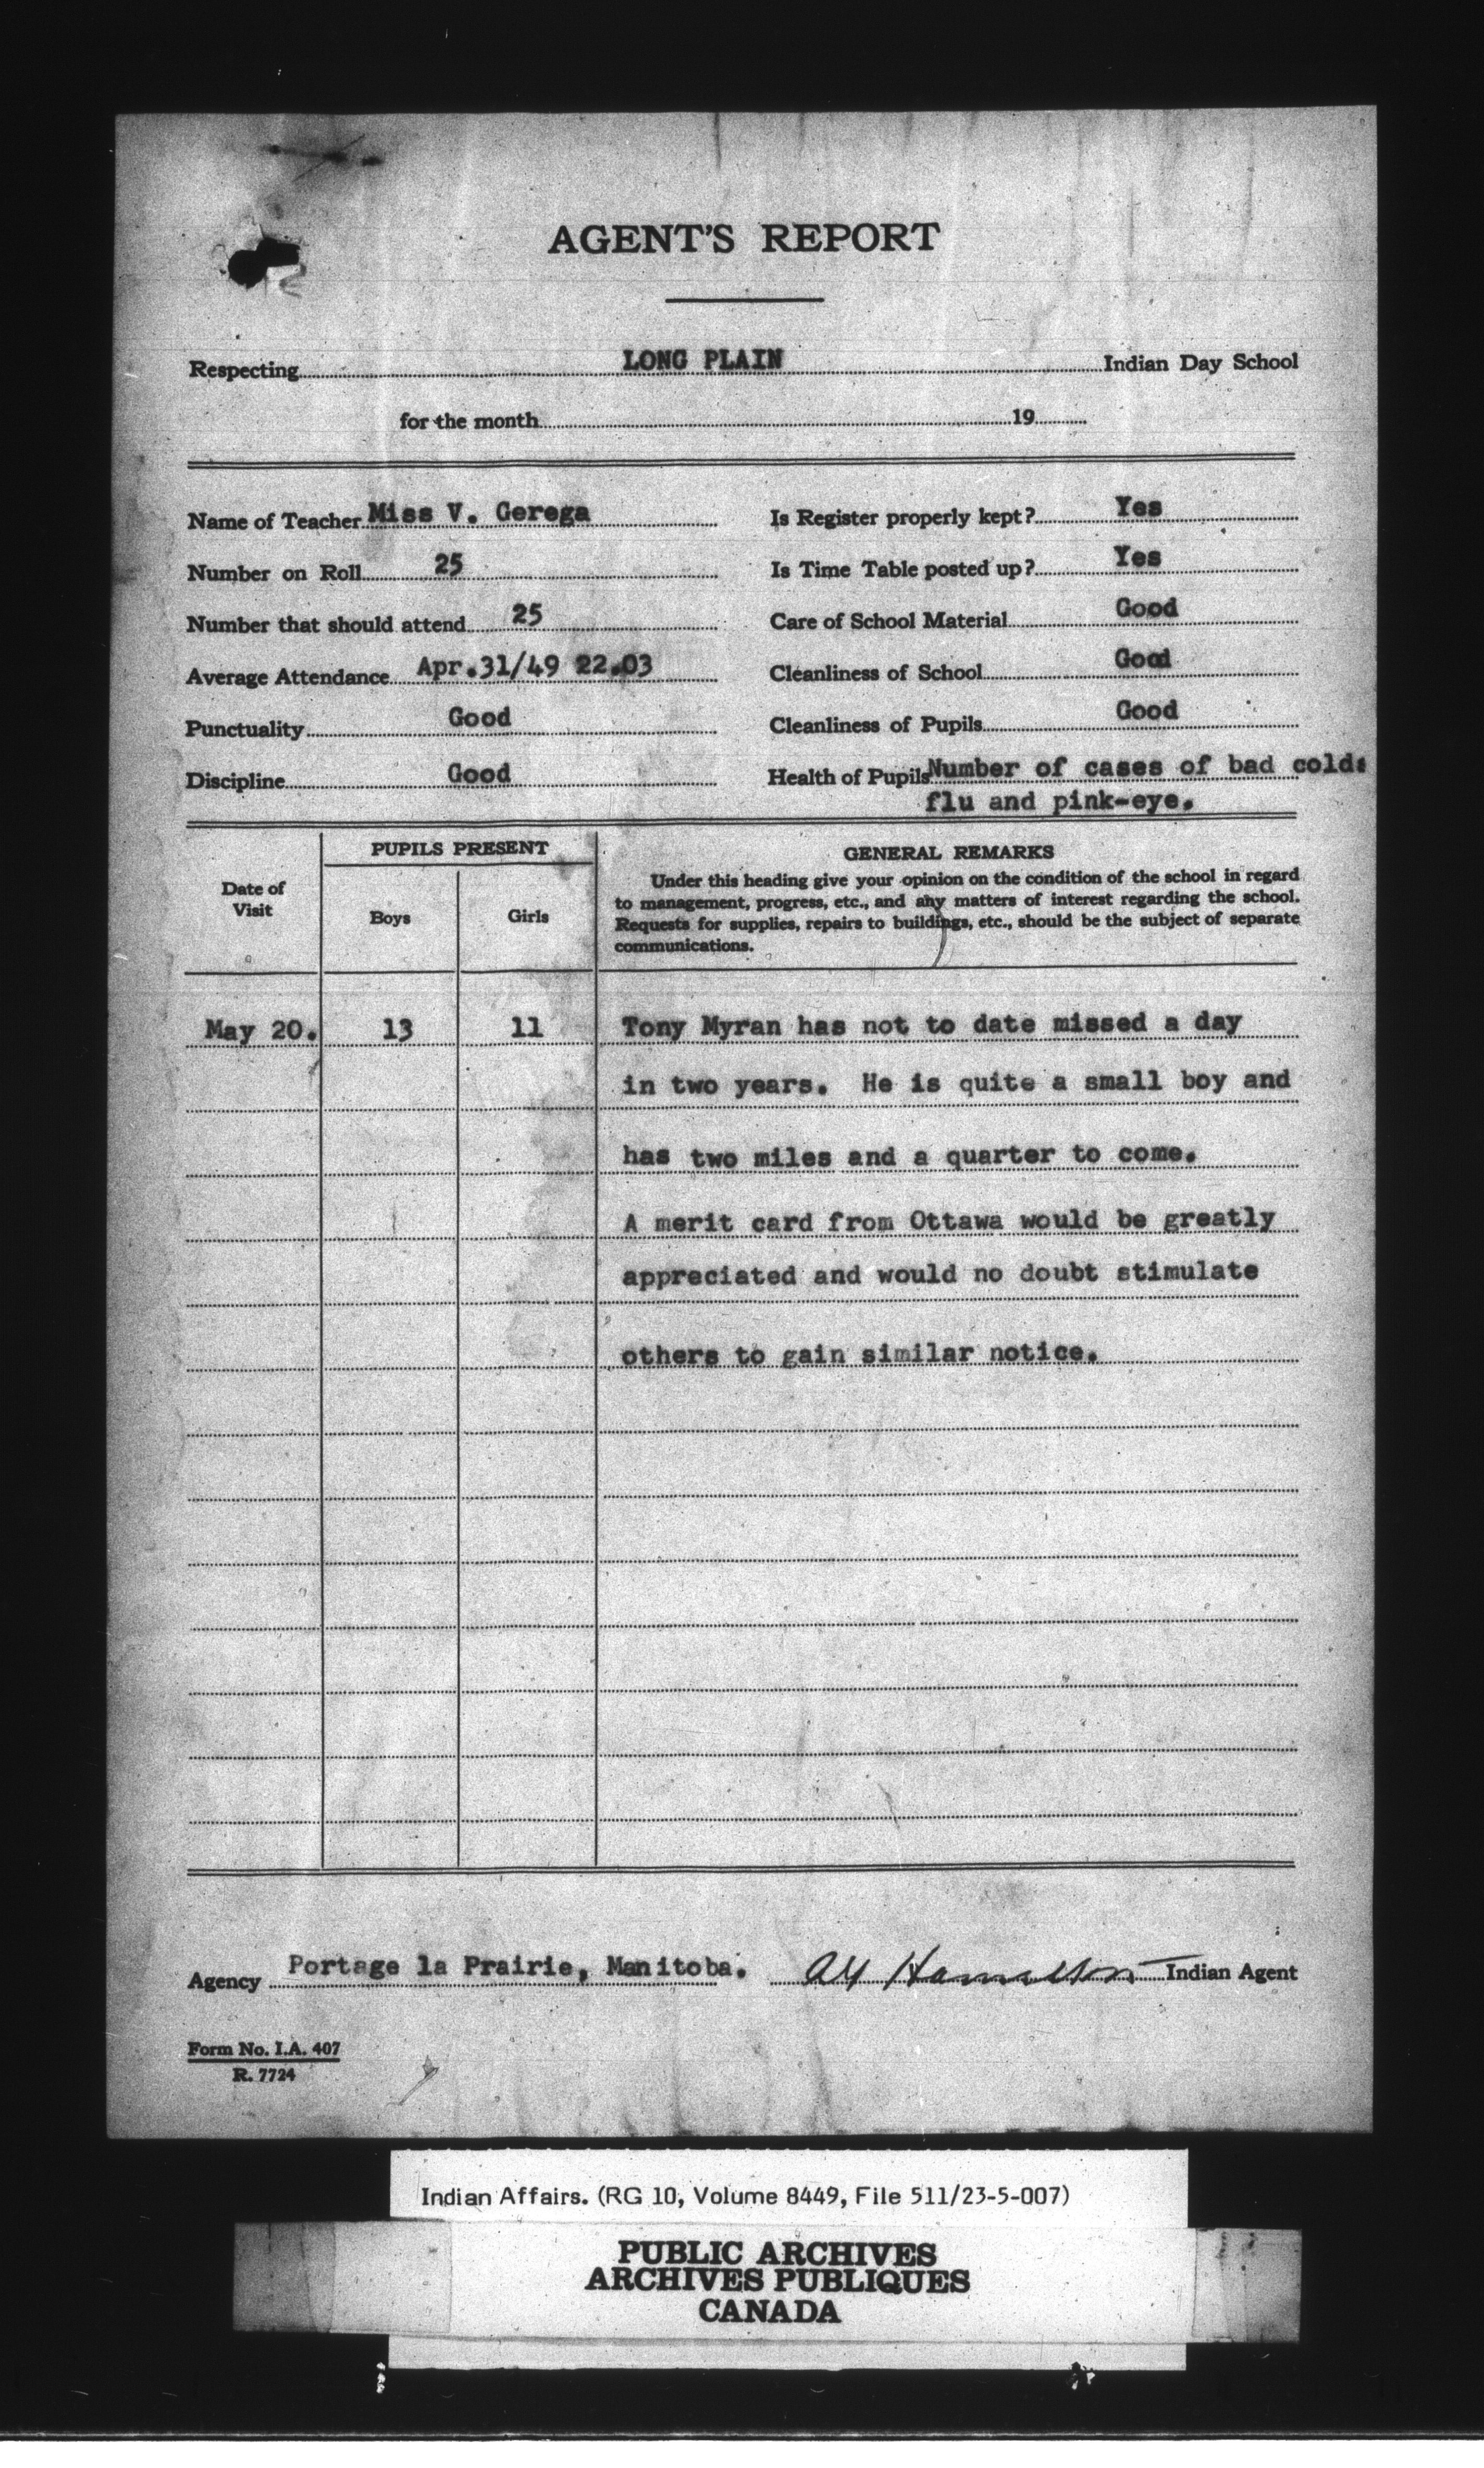 AGENT'S REPORT
Respecting LONG PLAIN Indian Day School
for the month 19
Name of Teacher Miss V. Gerega
Number on Roll 25
Number that should attend 25
Average Attendance Apr.31/49 22.03
Punctuality Good
Discipline Good
Is Register properly kept? Yes
Is Time Table posted up? Yes
Care of School Material Good
Cleanliness of School Good
Cleanliness of Pupils Good
Health of Pupils Number of cases of bad colds
flu and pink-eye.
Date of
Visit
PUPILS PRESENT
Boys
Girls
GENERAL REMARKS
Under this heading give your opinion on the condition of the school in regard
to management, progress, etc., and any matters of interest regarding the school.
Requests for supplies, repairs to buildings, etc., should be the subject of separate
communications.
May 20. 13 11 Tony Myran has not to date missed a day
in two years. He is quite a small boy and
has two miles and a quarter to come.
A merit card from Ottawa would be greatly
appreciated and would no doubt stimulate
others to gain similar notice.
Agency Portage la Prairie, Manitoba. Hamilton Indian Agent
Form No. I.A. 407
R. 7724
Indian Affairs. (RG 10, Volume 8449, File 511/23-5-007)
PUBLIC ARCHIVES
ARCHIVES PUBLIQUES
CANADA